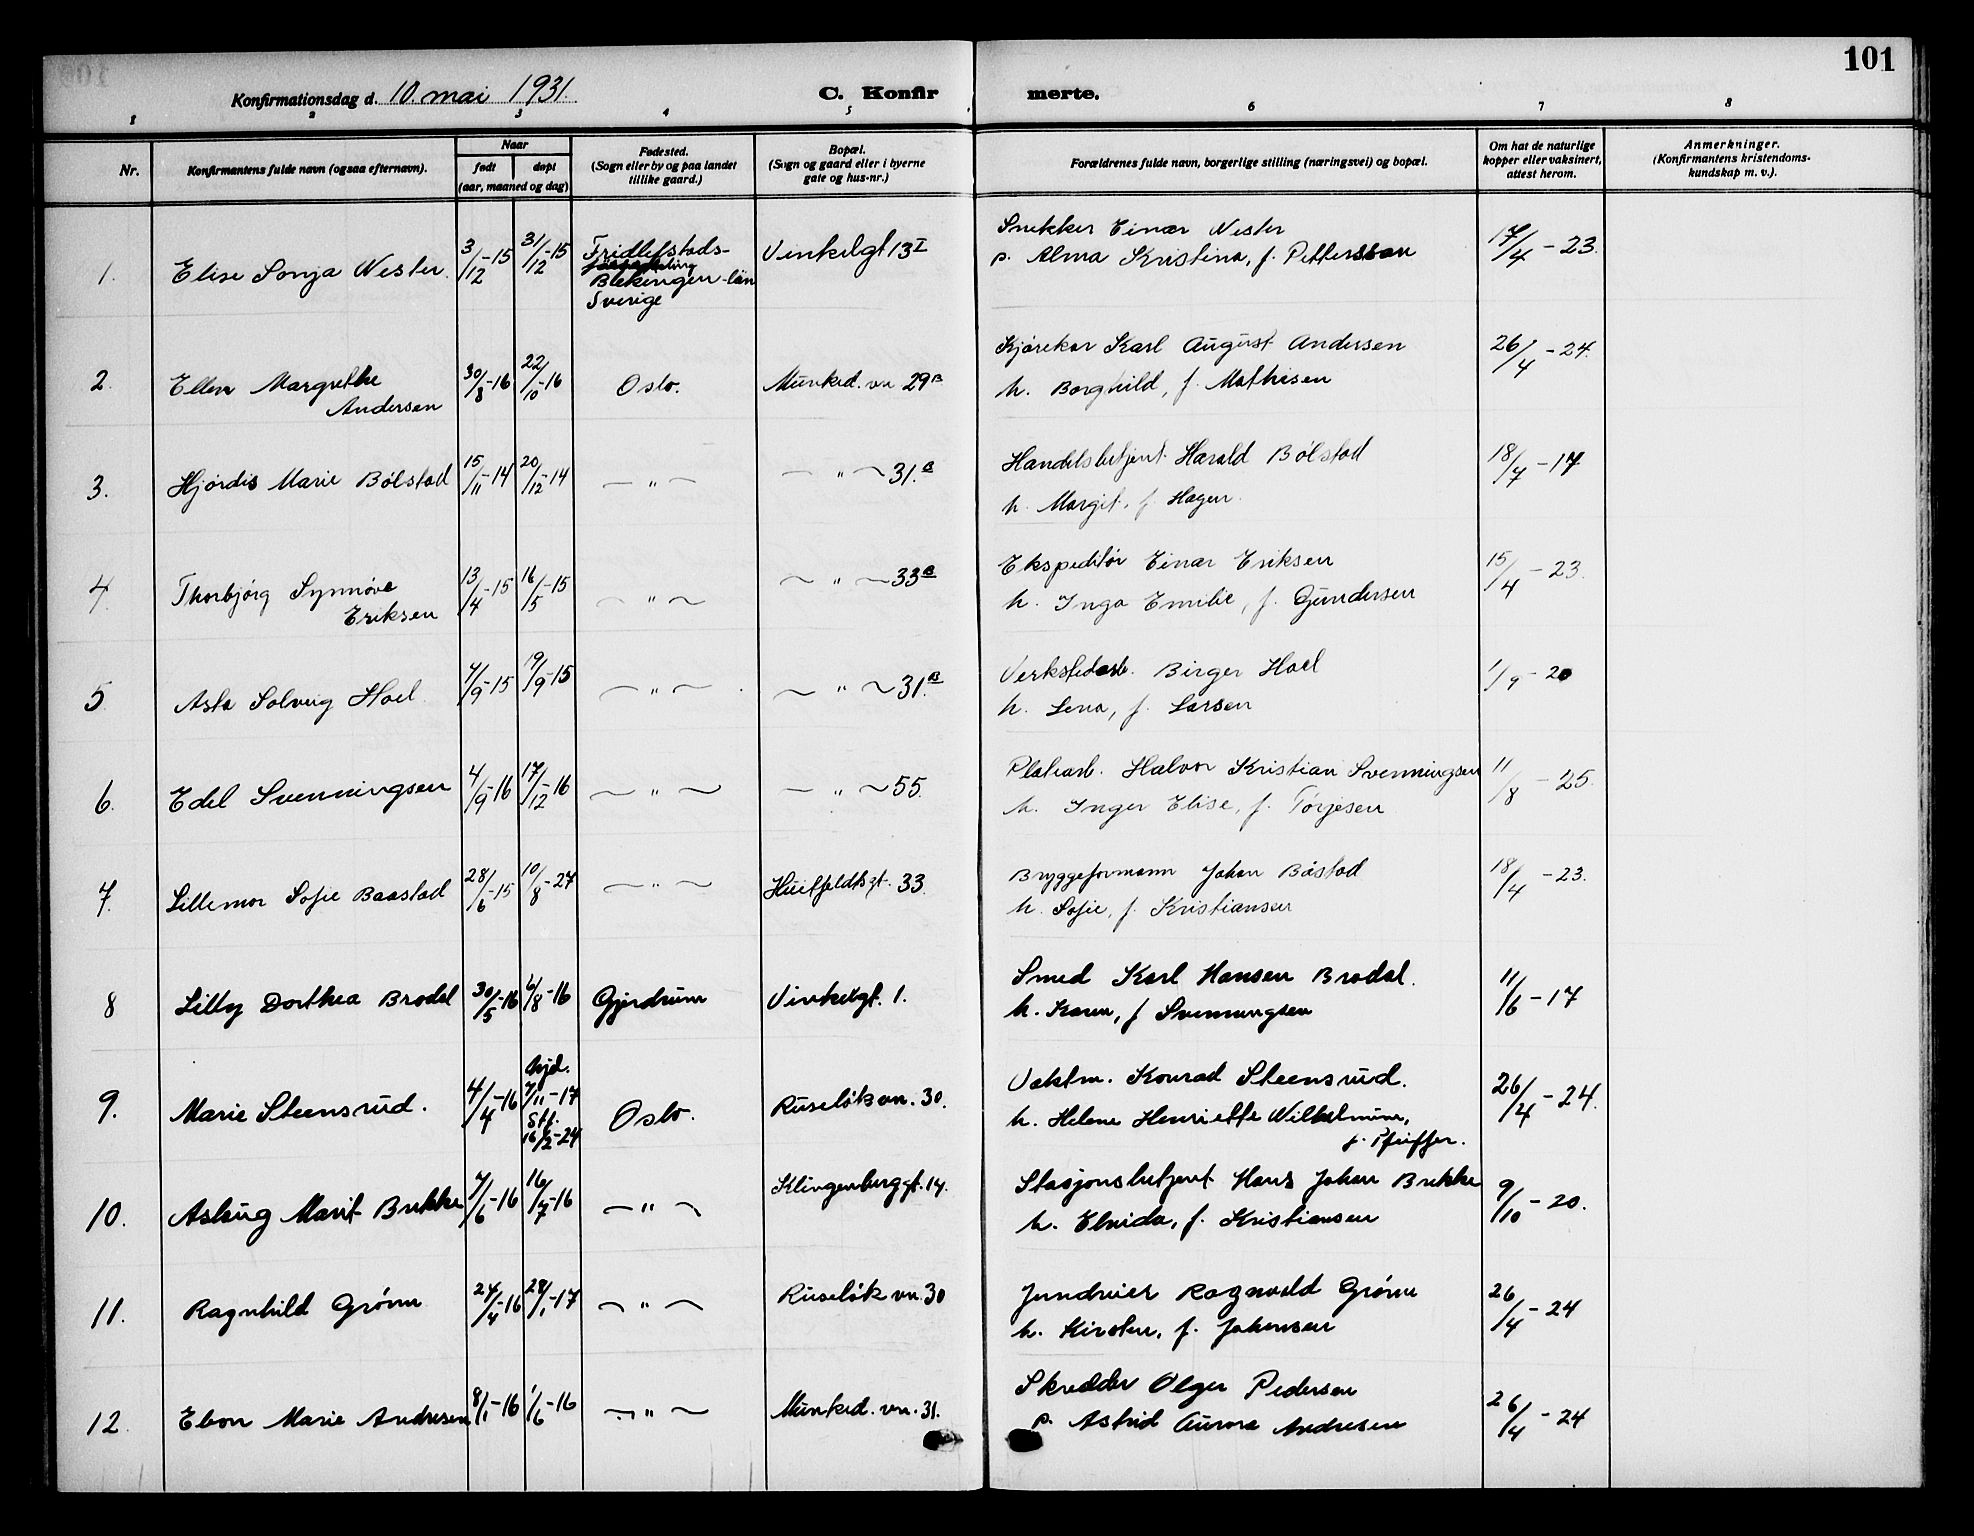 101
Konfirmationsdag d. 10. mai 1931.
C. Konfir merte.
1 2 3 4 5 6 7 8
Nr.
Konfirmantens fulde navn (ogsaa efternavn).
Naar
født
døpt
(aar, maaned og dag)
Fødested.
(Sogn eller by og paa landet
tillike gaard.)
Bopæl.
(Sogn og gaard eller i byerne
gate og hus-nr.)
Forældrenes fulde navn, borgerlige stilling (næringsvei) og bopæl.
Om hat de naturlige
kopper eller vaksinert,
attest herom.
Anmerkninger.
(Konfirmantens kristendoms-
kundskap m. v.).
1. Elise Sonja Nester. 3/12-15 31/12-15 Fridlefstads-
Blekingen-län
Sverige
Vinkelgt 13 I
Snekker Einar Nester
p. Alma Kristina, f. Pettersson
17/4-23.
2. Ellen Margrethe
Andersen
30/8-16 22/10-16 Oslo. Munked. vn 29 B
Kjørekar Karl August Andersen
h. Borghild, f. Mathisen
26/4-24.
3. Hjørdis Marie Bølstad 15/11-14 20/12-14 — " — — " — 31. B
Handelsbetjent Harald Bølstad
h. Margit, f. Hagen.
18/7-17
4. Thorbjørg Synnøve
Eriksen
13/4-15 16/5-15 — " — — " — 33 B
Ekspeditør Einar Eriksen
h. Inga Emilie, f. Gundersen
15/4-23.
5 Asta Solveig Hoel 7/9-15 19/9-15 — " — — " — 31. B
Verkstedarb. Birger Hoel
h. Lena, f. Larsen
1/9-20
6. Edel Svenningsen 4/9-16 17/12-16 — " — — " — 55.
Platearb. Halvor Kristian Svenningsen
h. Inger Elise, f. Tørjesen
11/8-25.
7. Lillemor Sofie Baastad 28/6-15 10/8-27 — " — Huitfeldtsgt. 33.
Bryggeformann Johan Båstad
h. Sofie, f. Kristiansen
18/4-23.
8 Lilly Dorthea Brodal 30/5-16 6/8-16 Gjerdrum Vinkelgt. 1.
Smed Karl Hansen Brodal.
h. Karen, f Svenningsen
11/6-17
9. Marie Steensrud. 4/4-16 hjd.
7/11-17
Stf.
16/2-24
Oslo. Ruseløkvn. 30.
Vaktm. Konrad Steensrud.
h. Helene Henriette Wilhelmine,
f. Pfeiffer.
26/4-24.
10. Aslaug Marit Brekke 7/6-16 16/7-16 — " — Klingenberggt. 14.
Stasjonsbetjent Hans Johan Brekke
h. Elvida, f. Kristiansen
9/10-20.
11. Ragnhild Grønn 24/4-16 28/1-17 — " — Ruseløkvn. 30
Ragnvald Grønn
h. Kirsten, f. Johansen
26/4-24
12. Ebon Marie Andresen 8/1-16 1/6-16 — " — Munked. vn. 31.
Skredder Olger Pedersen
p. Astrid Aurora Andresen
26/4-24